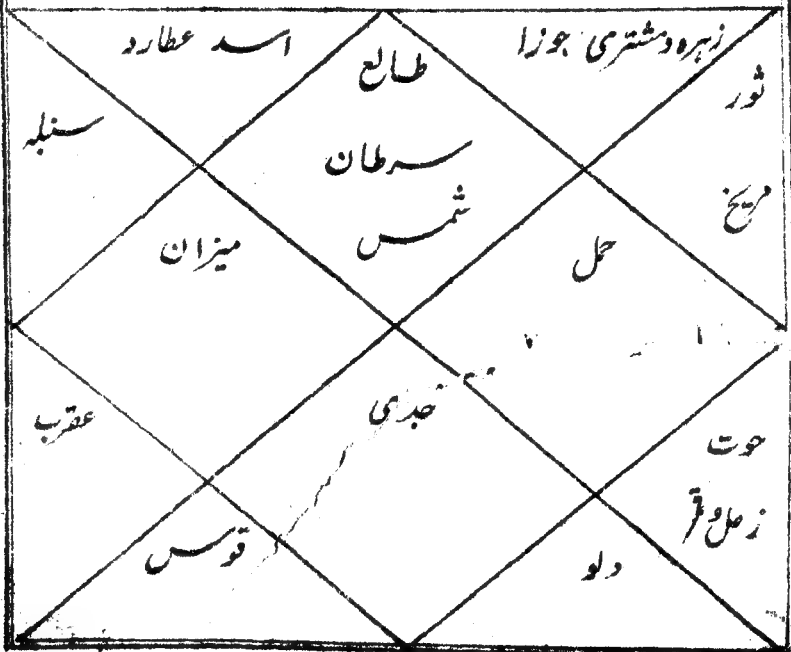 زہرہ و مشتری جوزا
اسد عطارد
طالع
سرطان
شمس
ثور
مریخ
سنبلہ
حمل
میزان
جدی
عقرب
حوت
زحل و قمر
قوس
دلو